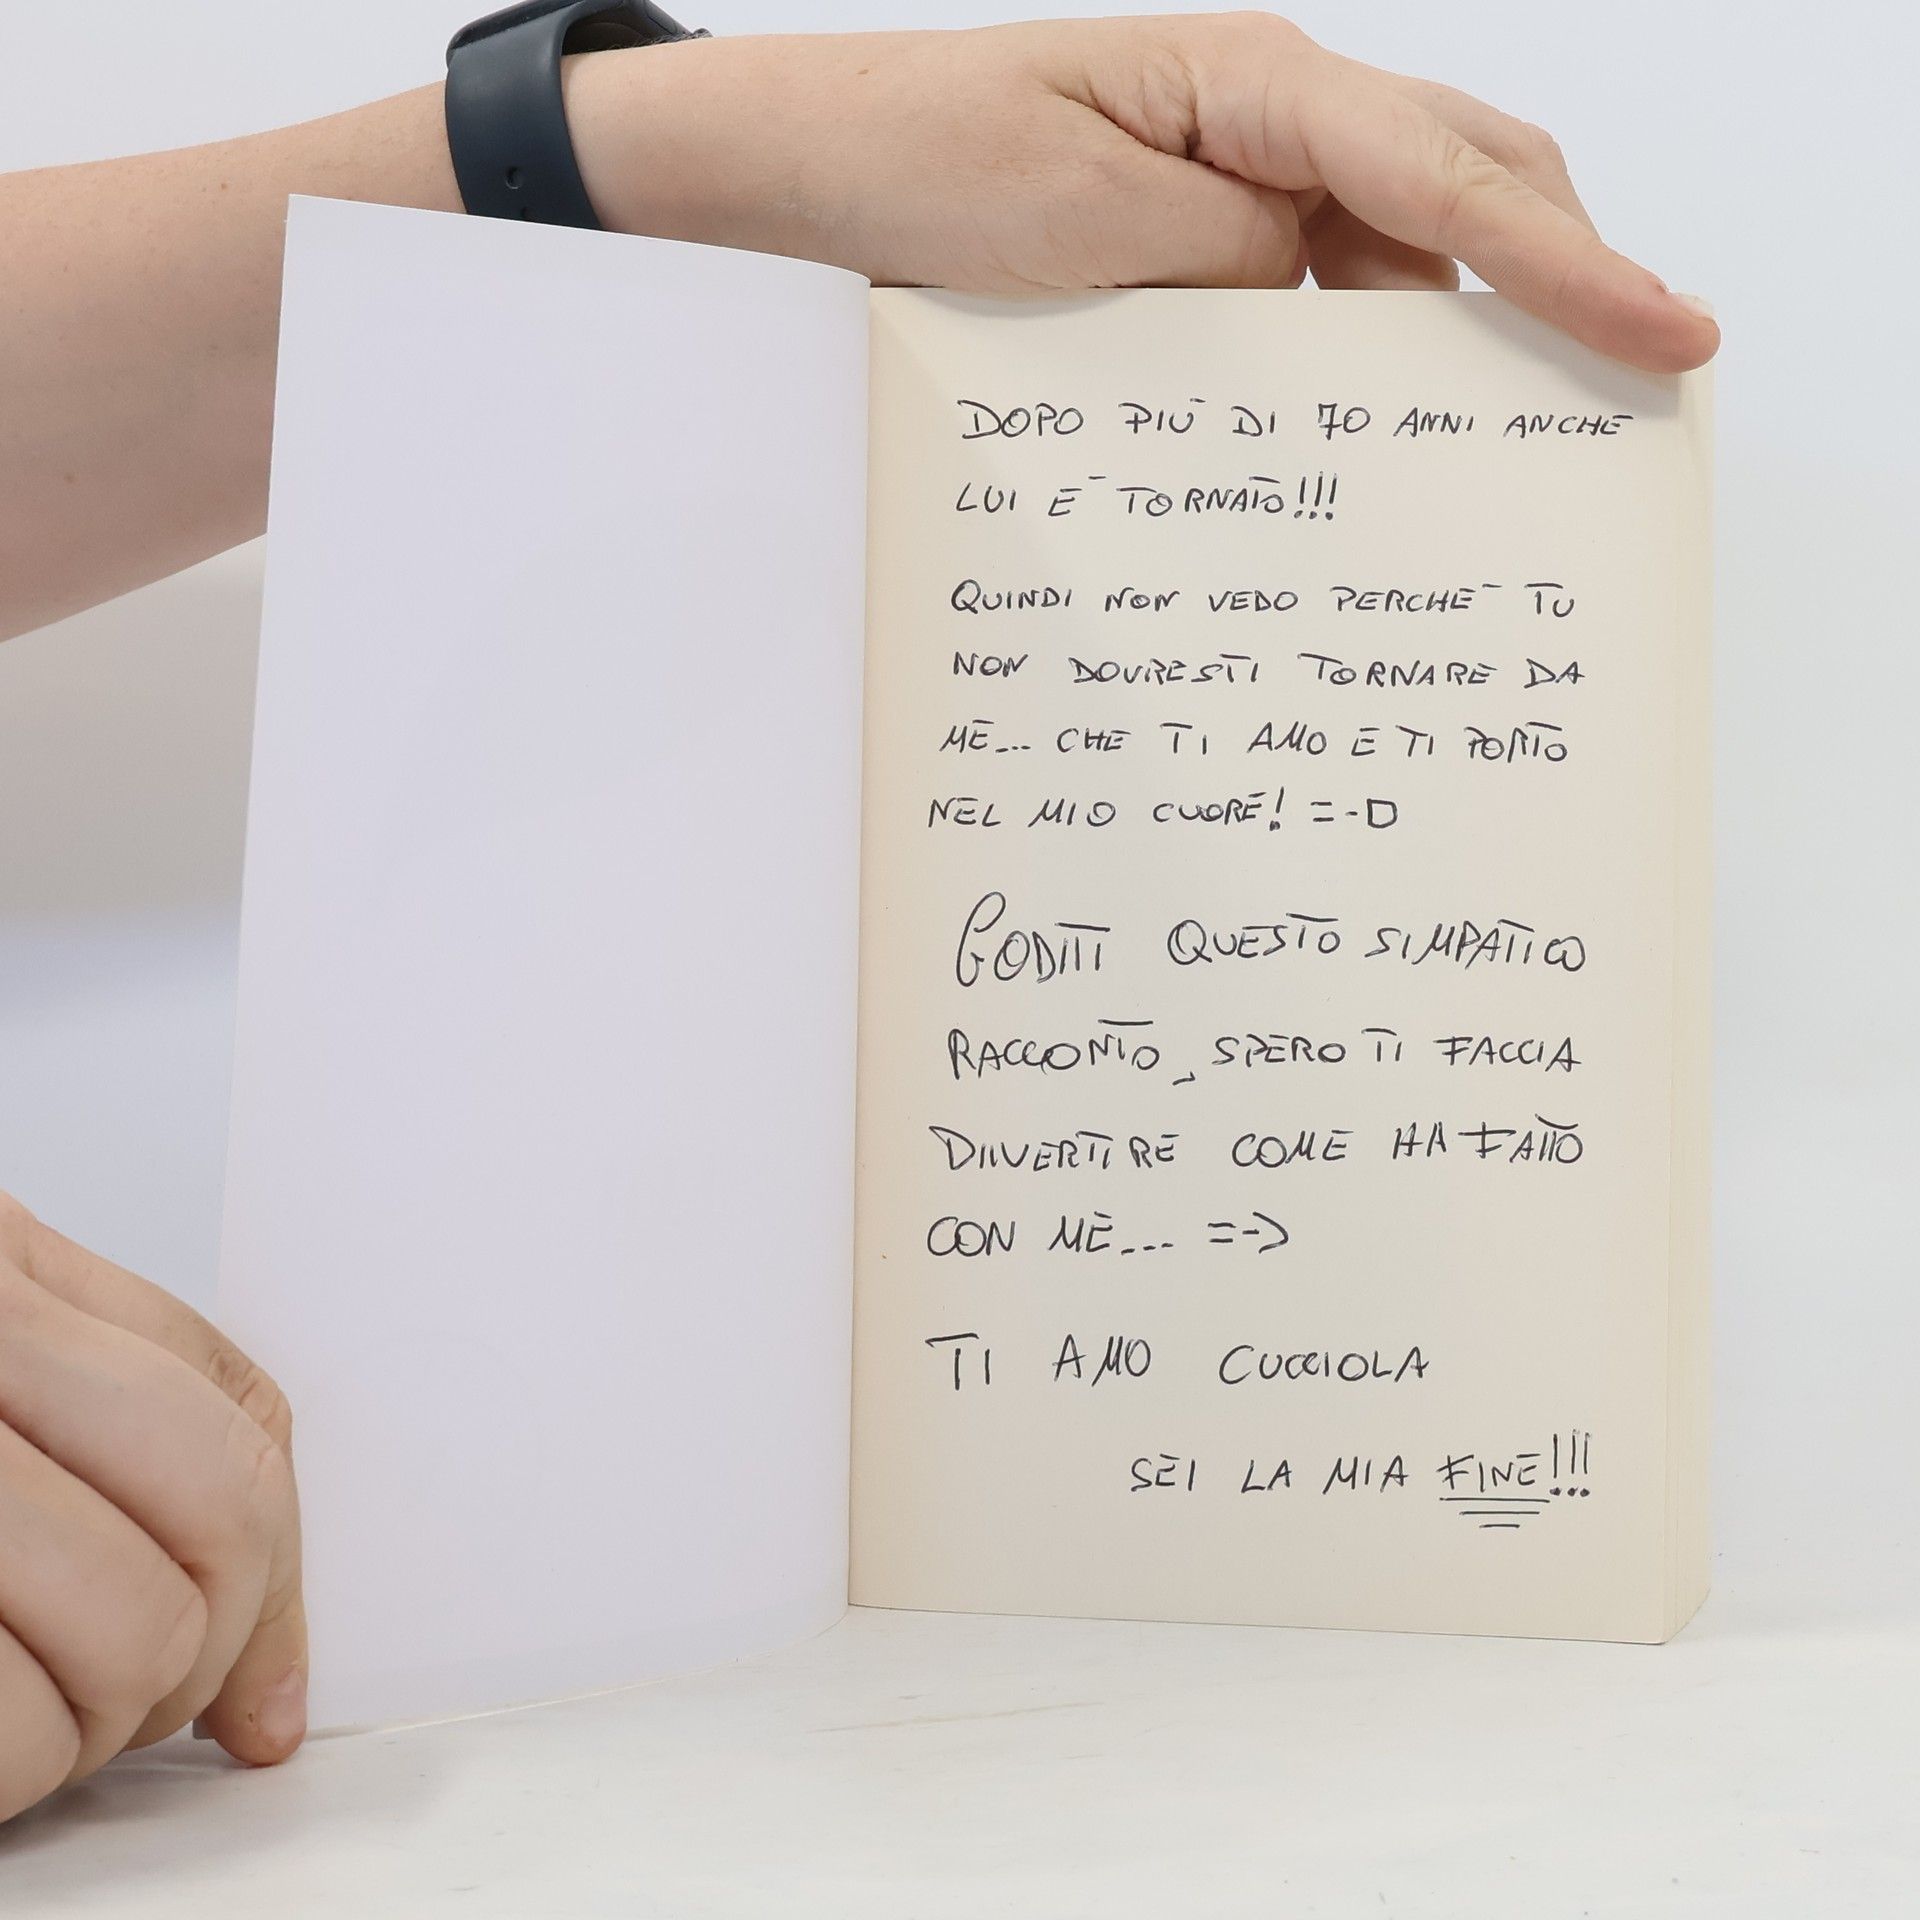 DOPO PIÙ DI 70 ANNI ANCHE
LUI È TORNATO!!!
QUINDI NON VEDO PERCHÉ TU
NON DOVRESTI TORNARE DA
ME... CHE TI AMO E TI PORTO
NEL MIO CUORE! =-D
GODITI QUESTO SIMPATICO
RACCONTO, SPERO TI FACCIA
DIVERTIRE COME HA FATTO
CON ME... =-)
TI AMO CUCCIOLA
SEI LA MIA FINE!!!